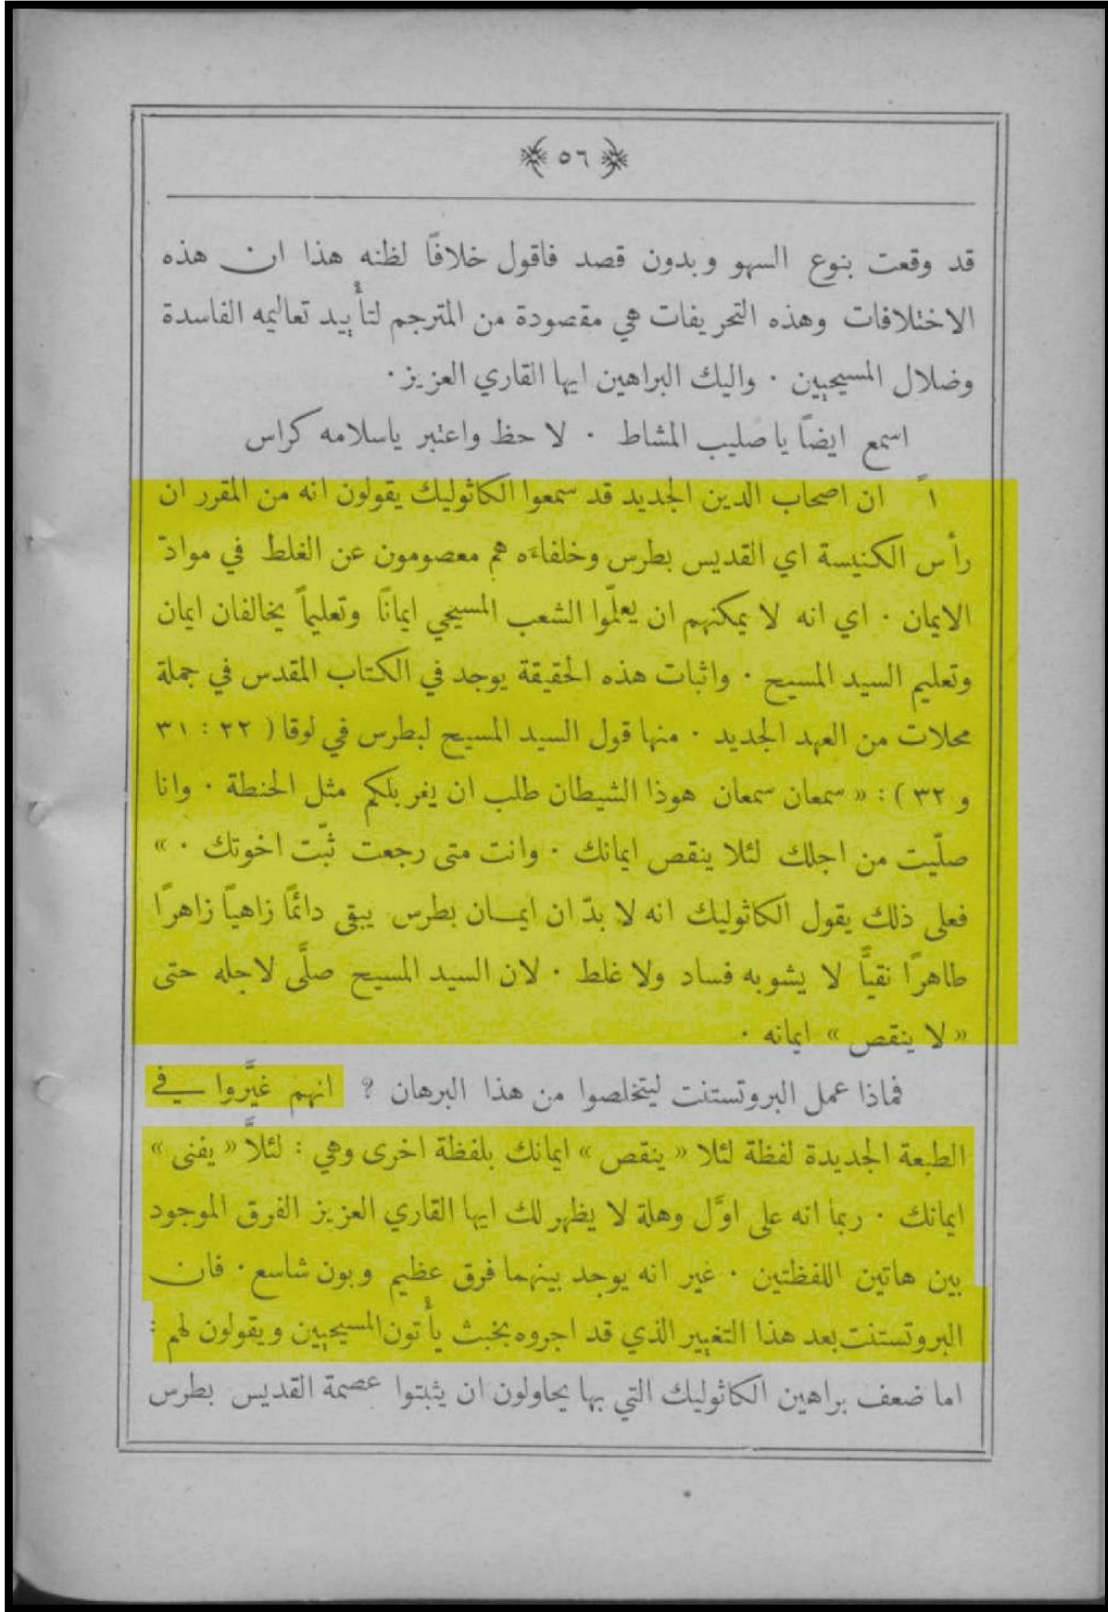 ٥٦
قد وقعت بنوع السهو وبدون قصد فاقول خلافًا لظنه هذا ان هذه
الاختلافات وهذه التحريفات هي مقصودة من المترجم لتأييد تعاليمه الفاسدة
وضلال المسيحيين · واليك البراهين ايها القاري العزيز ·
اسمع ايضًا يا صليب المشاط · لاحظ واعتبر ياسلامه كراس
١ً ان اصحاب الدين الجديد قد سمعوا الكاثوليك يقولون انه من المقرر ان
رأس الكنيسة اي القديس بطرس وخلفاءَه هم معصومون عن الغلط في موادّ
الايمان · اي انه لا يمكنهم ان يعلّموا الشعب المسيحي ايمانًا وتعليماً يخالفان ايمان
وتعليم السيد المسيح · واثبات هذه الحقيقة يوجد في الكتاب المقدس في جملة
محلات من العهد الجديد · منها قول السيد المسيح لبطرس في لوقا ( ٢٢ : ٣١
و ٣٢ ) : « سمعان سمعان هوذا الشيطان طلب ان يغربلكم مثل الحنطة · وانا
صلّيت من اجلك لئلا ينقص ايمانك · وانت متى رجعت ثبّت اخوتك · »
فعلى ذلك يقول الكاثوليك انه لا بدّ ان ايمان بطرس يبقى دائمًا زاهيًا زاهرًا
طاهرًا نقيًّا لا يشوبه فساد ولا غلط · لان السيد المسيح صلَّى لاجله حتى
« لا ينقص » ايمانه ·
فماذا عمل البروتستنت ليتخلصوا من هذا البرهان ? انهم غيَّروا في
الطبعة الجديدة لفظة لئلا « ينقص » ايمانك بلفظة اخرى وهي : لئلاَّ « يفنى »
ايمانك · ربما انه على اوَّل وهلة لا يظهر لك ايها القاري العزيز الفرق الموجود
بين هاتين اللفظتين · غير انه يوجد بينهما فرق عظيم وبون شاسع · فان
البروتستنت بعد هذا التغيير الذي قد اجروه بخبث يأتون المسيحيين ويقولون لهم :
اما ضعف براهين الكاثوليك التي بها يحاولون ان يثبتوا عصمة القديس بطرس